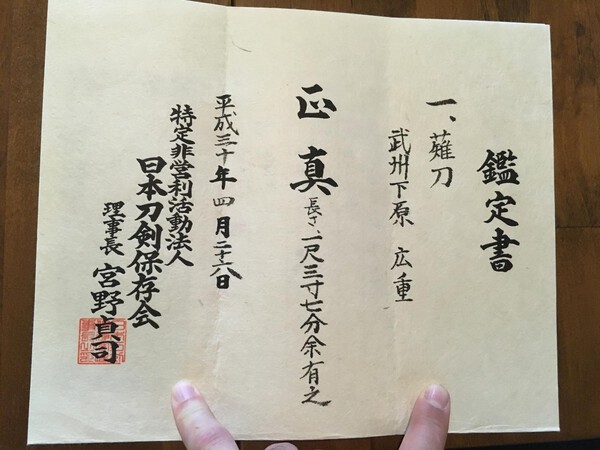 鑑定書
一、薙刀
武州下原 広重
正真 長さ、一尺三寸七分余有之
平成三十年四月二十六日
特定非営利活動法人
日本刀剣保存会
理事長 宮野貞司